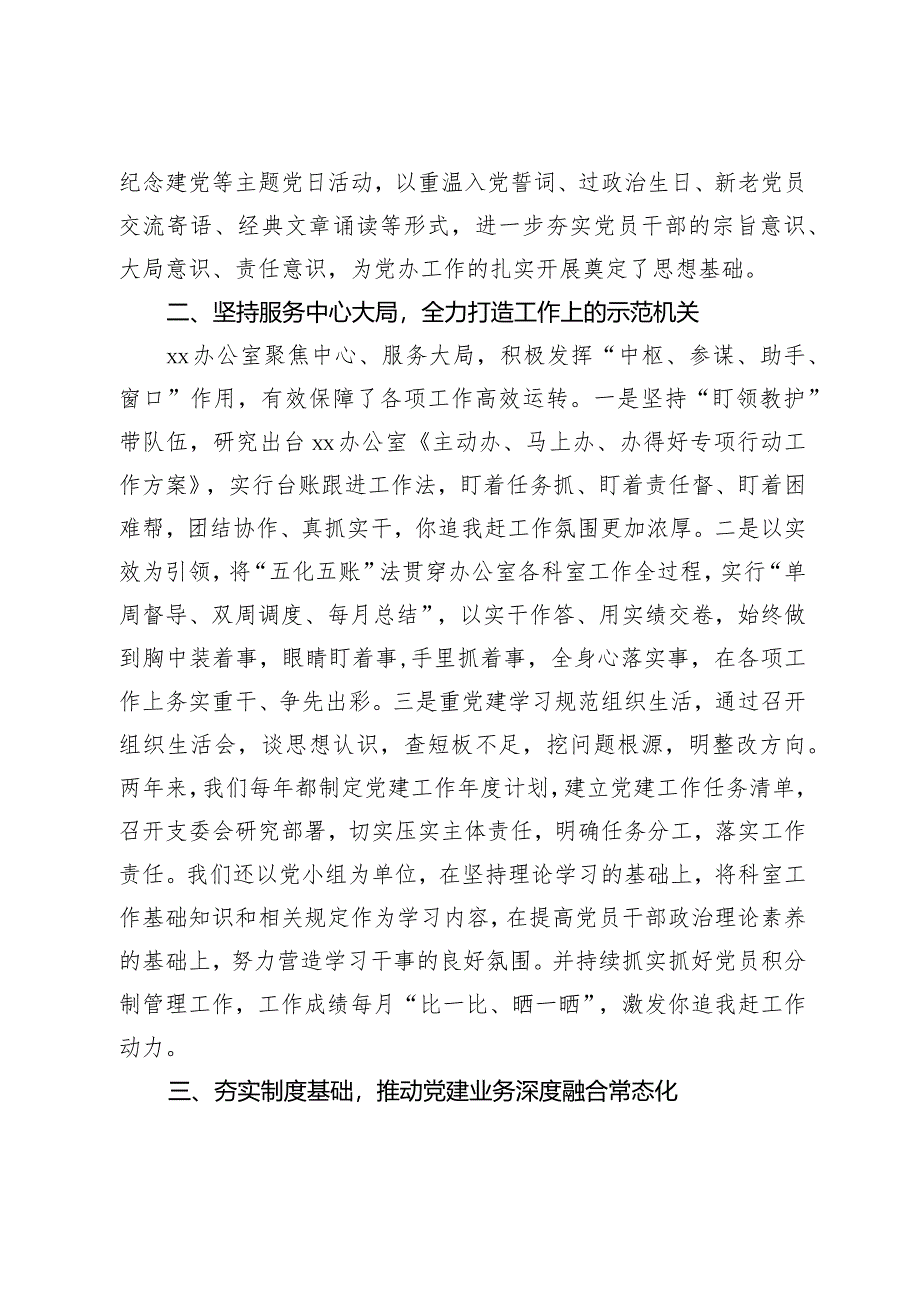 纪念建党等主题党日活动，以重温入党誓词、过政治生日、新老党员
交流寄语、经典文章诵读等形式，进一步夯实党员干部的宗旨意识、
大局意识、责任意识，为党办工作的扎实开展奠定了思想基础。
二、坚持服务中心大局，全力打造工作上的示范机关
xx办公室聚焦中心、服务大局，积极发挥“中枢、参谋、助手、
窗口”作用，有效保障了各项工作高效运转。一是坚持“盯领教护”
带队伍，研究出台xx办公室《主动办、马上办、办得好专项行动工
作方案》，实行台账跟进工作法，盯着任务抓、盯着责任督、盯着困
难帮，团结协作、真抓实干，你追我赶工作氛围更加浓厚。二是以实
效为引领，将“五化五账”法贯穿办公室各科室工作全过程，实行“单
周督导、双周调度、每月总结”，以实干作答、用实绩交卷，始终做
到胸中装着事，眼睛盯着事,手里抓着事，全身心落实事，在各项工
作上务实重干、争先出彩。三是重党建学习规范组织生活，通过召开
组织生活会，谈思想认识，查短板不足，挖问题根源，明整改方向。
两年来，我们每年都制定党建工作年度计划，建立党建工作任务清单，
召开支委会研究部署，切实压实主体责任，明确任务分工，落实工作
责任。我们还以党小组为单位，在坚持理论学习的基础上，将科室工
作基础知识和相关规定作为学习内容，在提高党员干部政治理论素养
的基础上，努力营造学习干事的良好氛围。并持续抓实抓好党员积分
制管理工作，工作成绩每月“比一比、晒一晒”，激发你追我赶工作
动力。
三、夯实制度基础，推动党建业务深度融合常态化